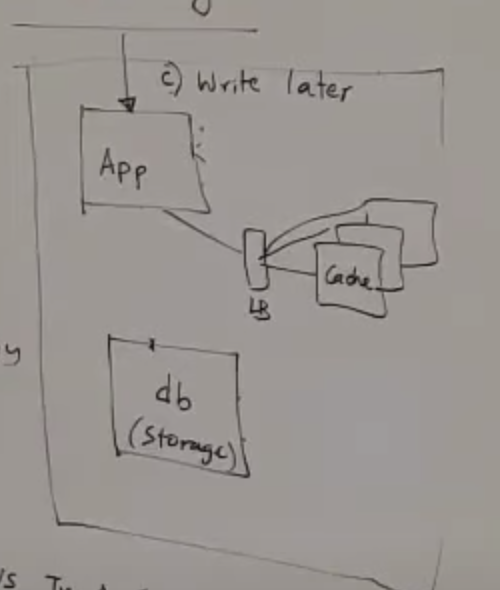 c) Write later
App
Cache
LB
db
(Storage)
y